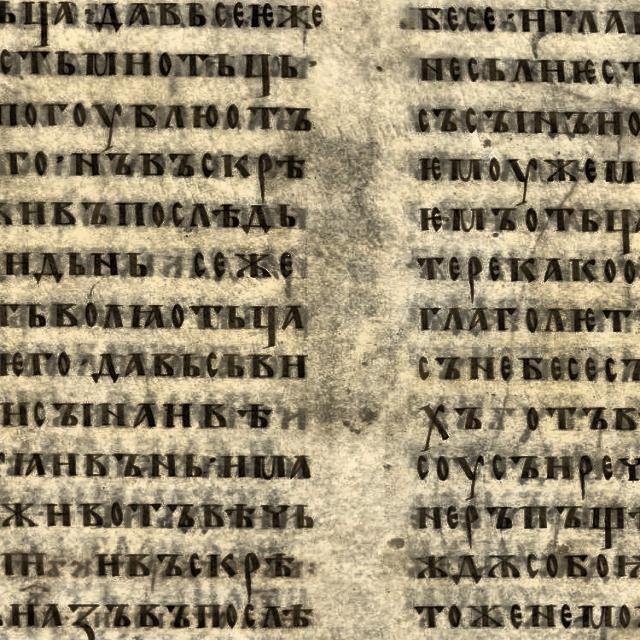 ьца·давьсеѭже
стьмнотьць·
погоублюотъ
го·нъвъскрѣ
жнвъпослѣдь
ндьнь сеже
тьволꙗотьца
него·давьсьвн
носꙑнанвѣн
ꙗнвънь·нша
жнвотъвѣчь
нъскрѣ
назъвъпослѣ
бесе·нгла
несьлнѥст
съсꙑнъно
ѥмоужем
ѥмъотьц
терекако
глаголѥт
сънебесес
хъ отъв
соусънреч
неръпъщ
ждѫсобо
тоженемо